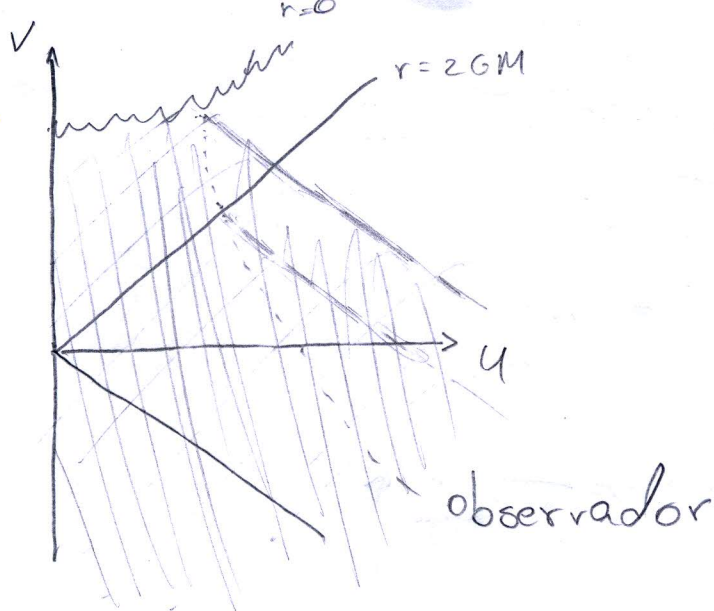 r=0
V
r=2GM
u
observador